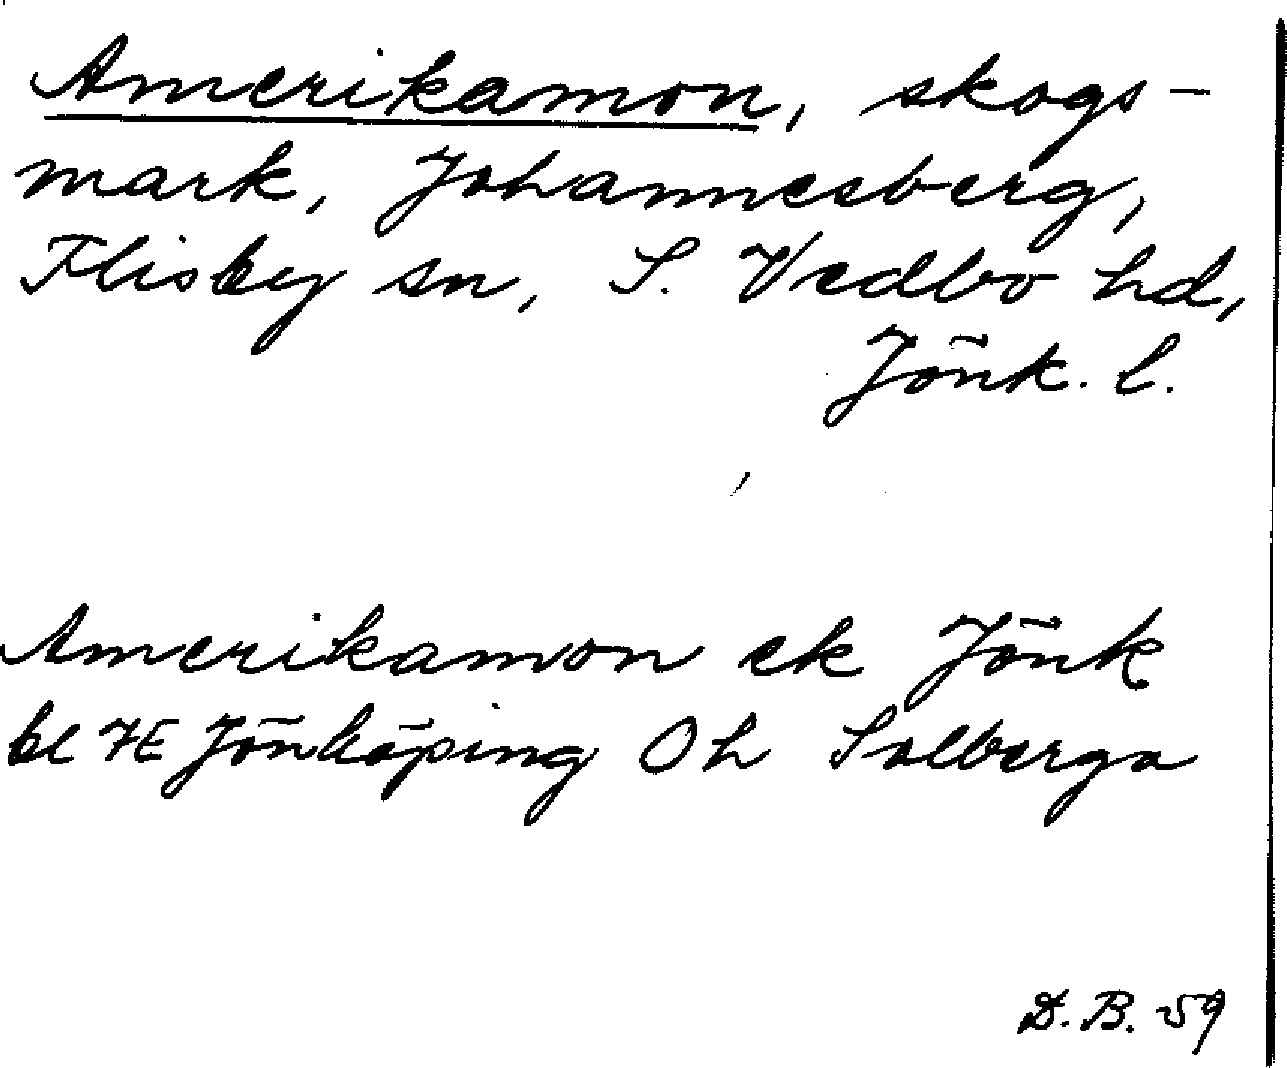 Amerikamon, skogs-
mark, Johannesberg,
Flisby sn, S. Vedbo hd,
Jönk. l.
Amerikamon ek Jönk
bl 7E Jönköping Oh Solberga
D. B. 59